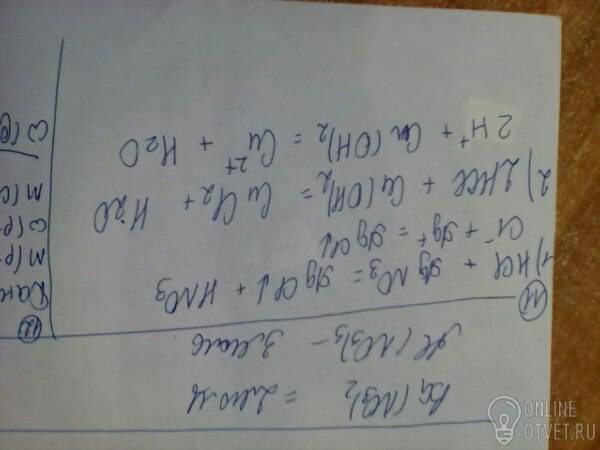 Ba(NO3)2 = 2моль
Al(NO3)3 – 3моль
11
1) HCl + AgNO3 = AgCl↓ + HNO3
Cl⁻ + Ag⁺ = AgCl↓
2) 2HCl + Cu(OH)2 = CuCl2 + H2O
2H⁺ + Cu(OH)2 = Cu²⁺ + H2O
12
Дан
m(р-
ω(р-
m(с
ω(
ONLINE
OTVET.RU